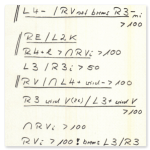 L4- / RV not brems R3-mi
>100
RE/L2K
R4+l > ∩RVi >100
L3 /R3i > 50
RV/∩L4+ wird- >100
R3 wird V(R4)/L3+ wird V
>100
∩RVi >100
RVi >100 ! brems L3/R3